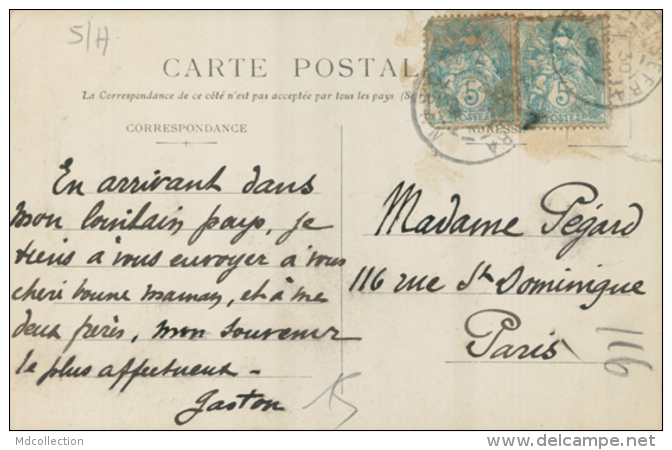 5/H
CARTE POSTAL
La Correspondance de ce côté n'est pas acceptée par tous les pays (Se
CORRESPONDANCE
ADRESSE
5
POSTES
5
POSTES
En arrivant dans
mon lointain pays, je
tiens à vous envoyer à vous
chère bonne maman, et à mes
deux frères, mon souvenir
le plus affectueux -
Gaston
Madame Pégard
116 rue St Dominique
Paris
116
15
Mdcollection
www.delcampe.net